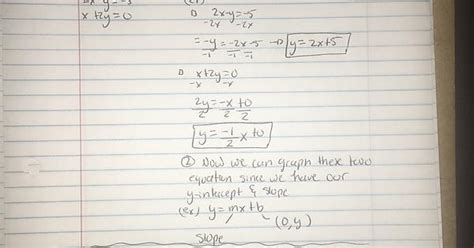 x+2y=0
① 2x-y=-5
-2x -2x
=-y=-2x-5 → y=2x+5
-1 -1 -1
② x+2y=0
-x -x
2y=-x+0
2 2 2
y=-1/2 x+0
② Now we can graph these two
equation since we have our
y-intercept & slope
(ex) y=mx+b
(0,y)
slope